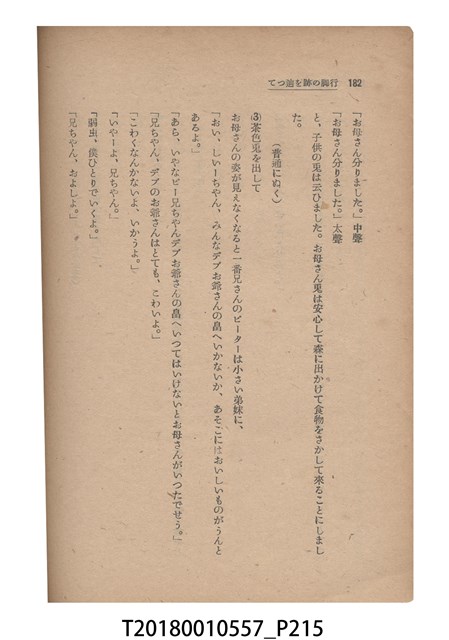 182 行脚の跡を追つて
『お母さん分りました。』中聲
『お母さん分りました。』太聲
と、子供の兎は云ひました。お母さん兎は安心して森に出かけて食物をさがして來ることにしまし
た。
(普通にぬく)
(3)茶色兎を出して
お母さんの姿が見えなくなると一番兄さんのピーターは小さい弟妹に、
『おい、しいーちやん、みんなデブお爺さんの畠へいかないか、あそこにはおいしいものがうんと
あるよ。』
『あら、いやなピー兄ちやんデブお爺さんの畠へいつてはいけないとお母さんがいつたでせう。』
『兄ちやん、デブのお爺さんはとても、こわいよ。』
『こわくなんかないよ、いかうよ。』
『いやーよ、兄ちやん。』
『弱虫、僕ひとりでいくよ。』
『兄ちやん、およしよ。』
T20180010557_P215